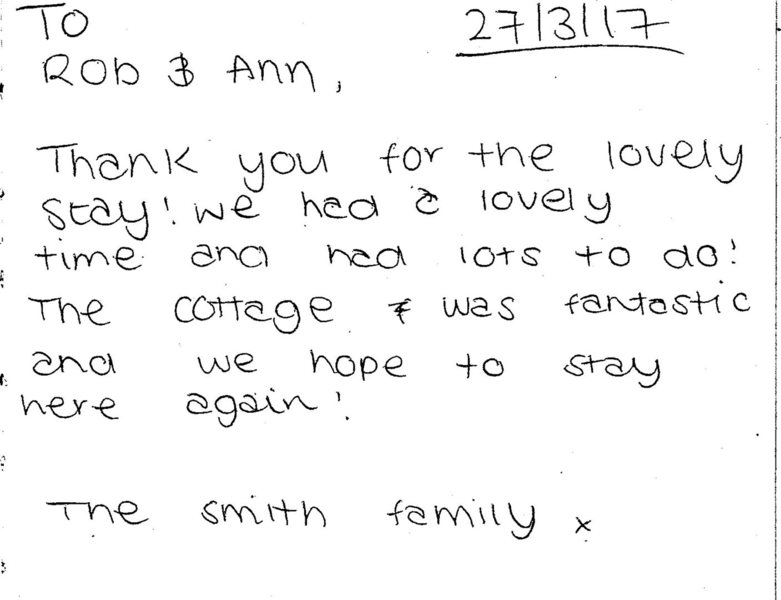 To 27/3/17
Rob & Ann,
Thank you for the lovely
stay! we had a lovely
time and had lots to do!
The cottage was fantastic
and we hope to stay
here again!
The smith family x